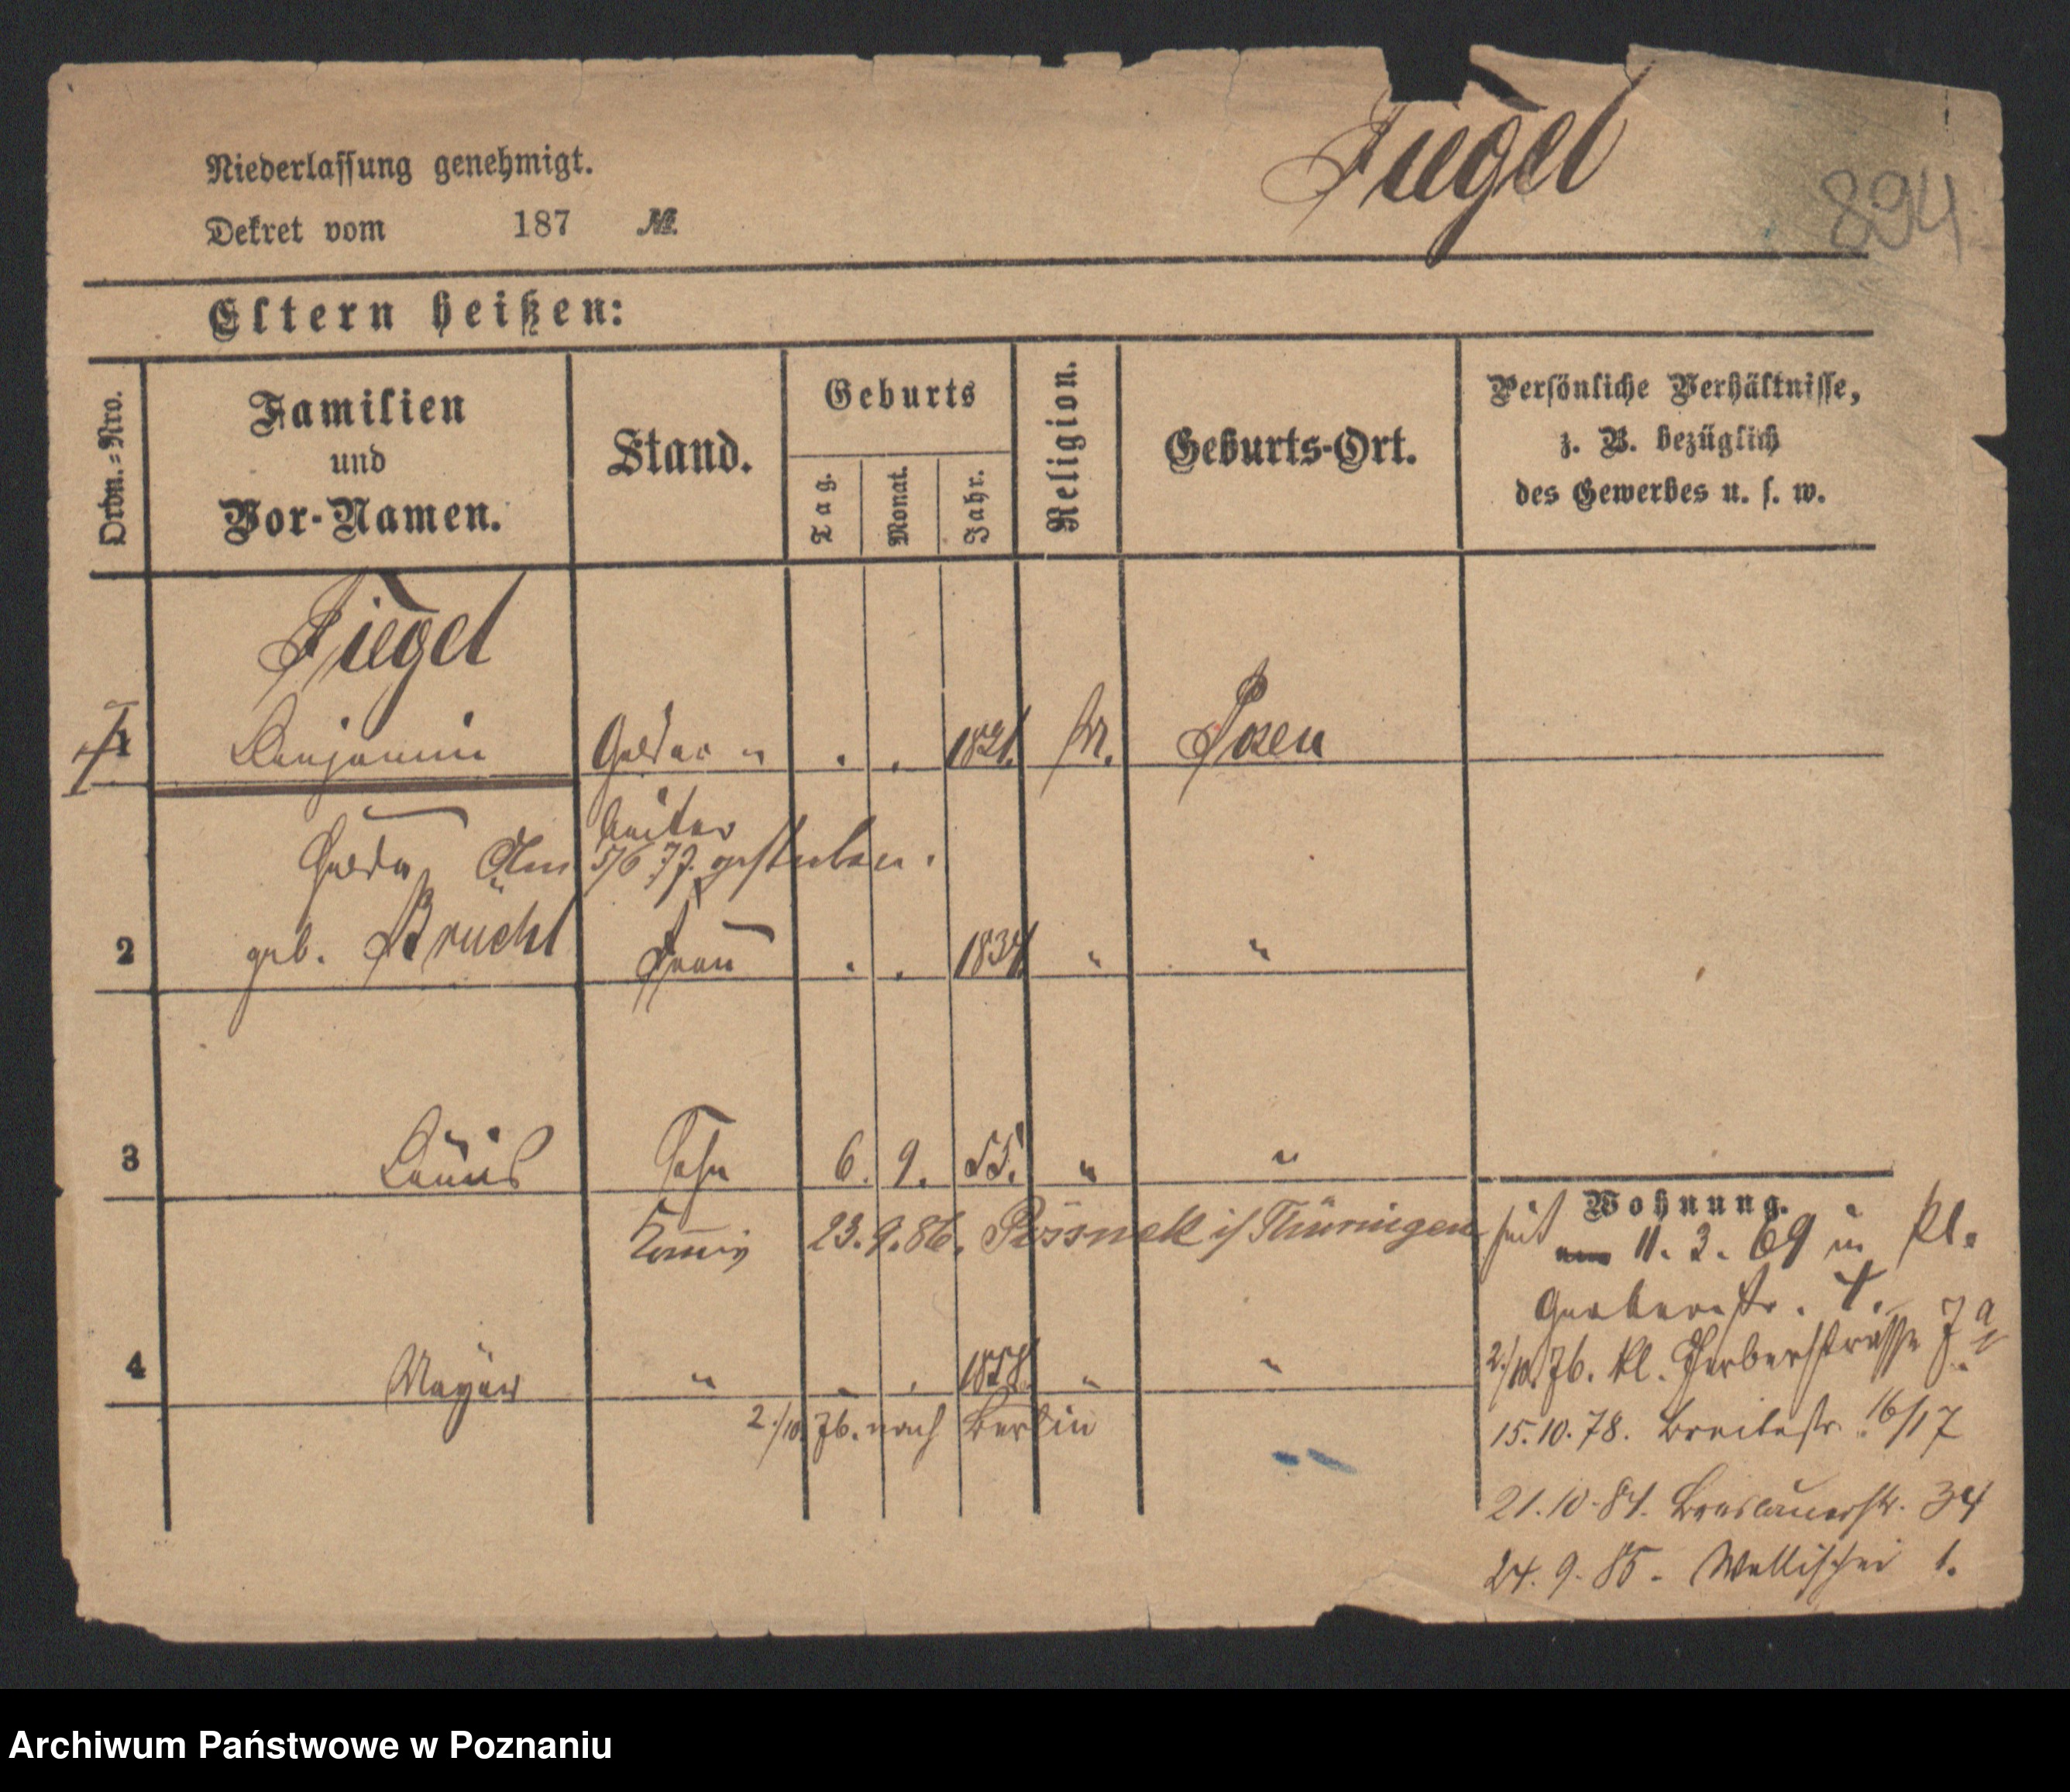 Fiegel
894
Niederlassung genehmigt.
Dekret vom 187 №
Eltern heißen:
Ordn.-Nro.
Familien
und
Vor-Namen.
Stand.
Geburts
Tag.
Monat.
Jahr.
Religion.
Geburts-Ort.
Persönliche Verhältnisse,
z. B. bezüglich
des Gewerbes u. s. w.
Fiegel
1 Benjamin 1821. Posen
Am 5/6 77. gestorben.
2 geb. Brückl Frau 1834 " "
3 Louis Sohn 6. 9. 55. " "
23. 9. 86. Pössnek i/ Thüringen
4 Mayer " 1858 " "
2./10. 76. nach Berlin
Wohnung.
seit 11. 3. 69 in kl.
Gerberstr. 4.
2./10. 76. kl. Gerberstrasse 7a
15. 10. 78. Breitestr. 16/17
21. 10. 84. Breslauerstr. 34
24. 9. 85. Wallischei 1.
Archiwum Państwowe w Poznaniu